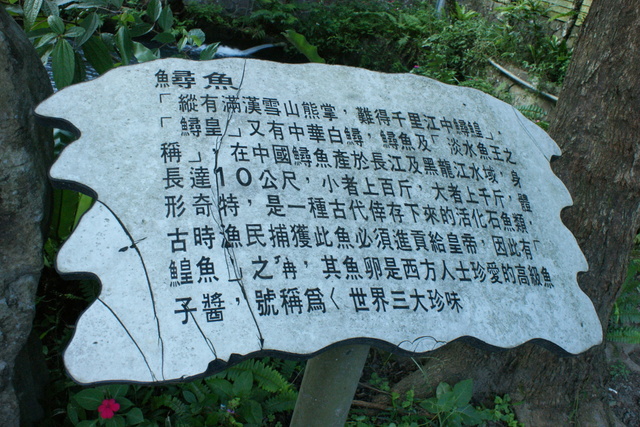 鱘魚
「縱有滿漢雪山熊掌，難得千里江中鱘鰉」，
「鱘皇」又有中華白鱘，鱘魚及「淡水魚王之
稱」，在中國鱘魚產於長江及黑龍江水域，身
長達10公尺，小者上百斤，大者上千斤，體
形奇特，是一種古代倖存下來的活化石魚類，
古時漁民捕獲此魚必須進貢給皇帝，因此有「
鰉魚」之稱，其魚卵是西方人士珍愛的高級魚
子醬，號稱為〈世界三大珍味